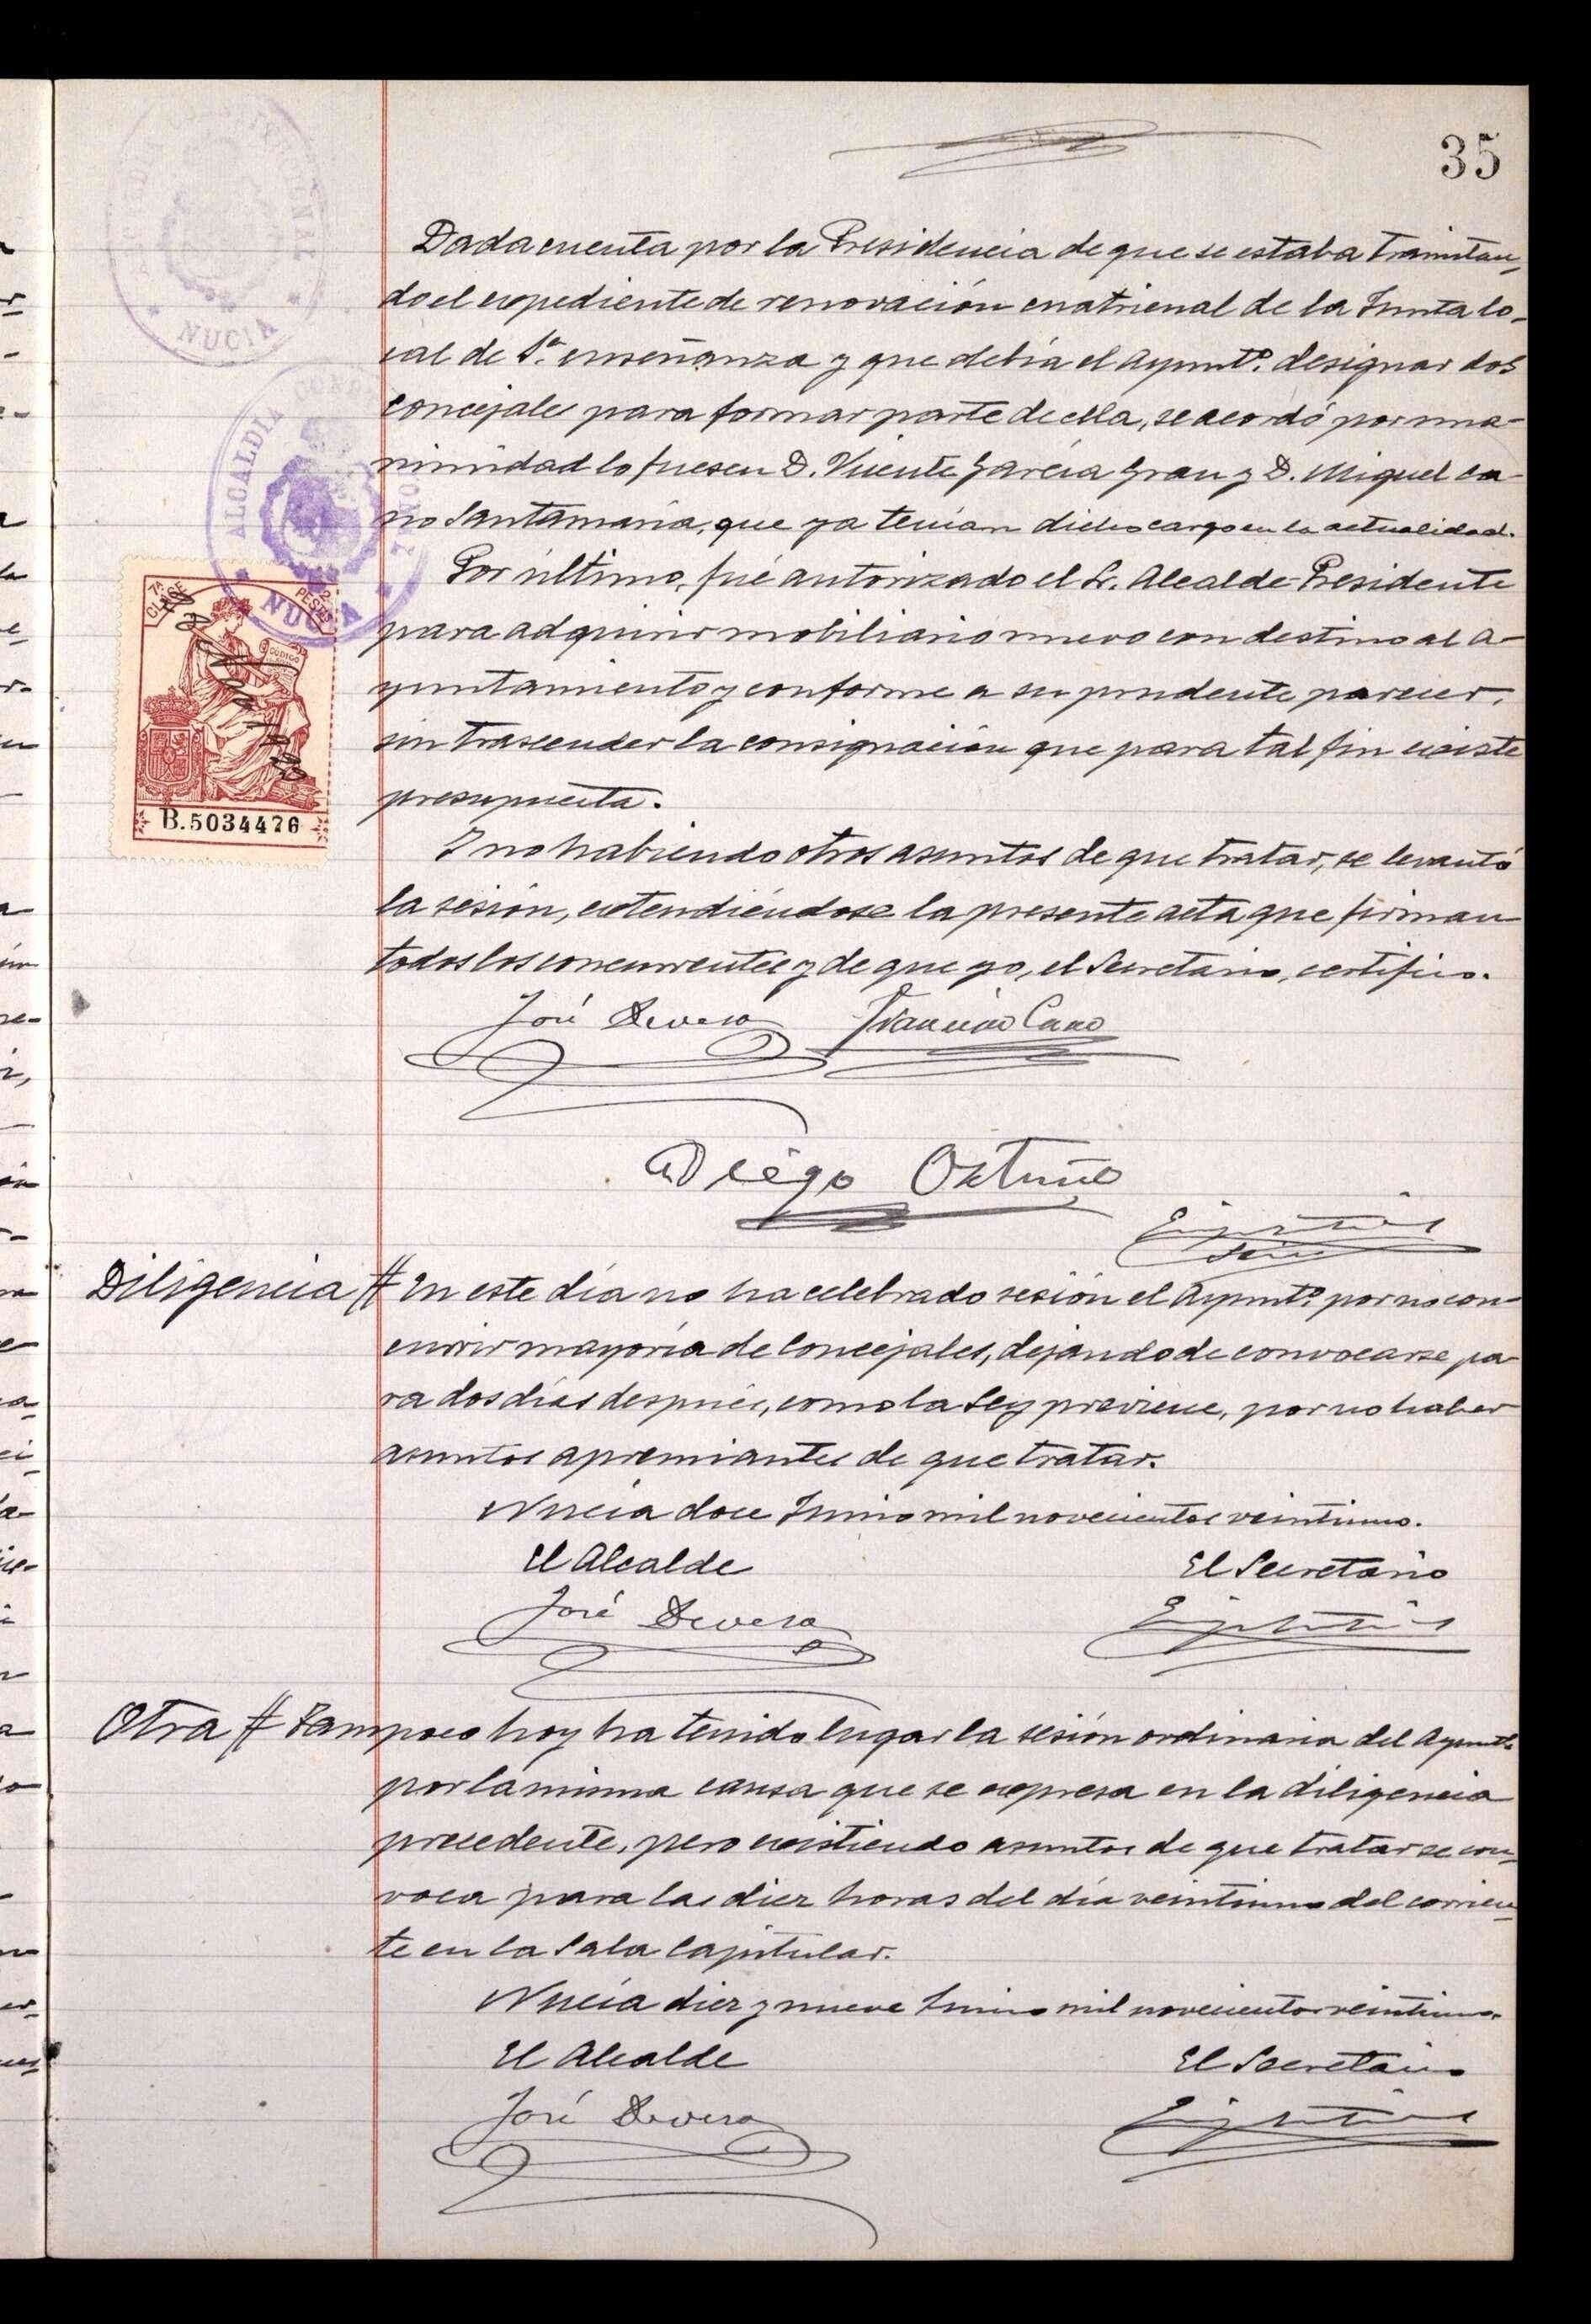 35
Dada cuenta por la Presidencia de que se estaba tramitan-
do el expediente de renovación cuatrienal de la Junta lo-
cal de 1ª enseñanza y que debía el Ayuntº. designar dos
concejales para formar parte de ella, se acordó por una-
nimidad lo fuesen D. Vicente García Grau y D. Miguel Ca-
no Santamaría, que ya tenían dicho cargo en la actualidad.
Por último, fué autorizado el Sr. Alcalde-Presidente
para adquirir mobiliario nuevo con destino al A-
yuntamiento y conforme a su prudente parecer,
sin trascender la consignación que para tal fin existe
presupuesta.
Y no habiendo otros asuntos de que tratar, se levantó
la sesión, extendiéndose la presente acta que firman
todos los concurrentes y de que yo, el Secretario, certifico.
José Devesa Francisco Cano
Diego Ortuño
ALCALDIA
NUCIA
NUCIA
7ª CLASE
2 PESETAS
CÓDIGO
B.5034476
Diligencia # En este día no ha celebrado sesión el Ayuntº. por no con-
currir mayoría de Concejales, dejando de convocarse pa-
ra dos días después, como la Ley previene, por no haber
asuntos apremiantes de que tratar.
Nucía doce Junio mil novecientos veintiuno.
El Alcalde El Secretario
José Devesa
Otra # Tampoco hoy ha tenido lugar la sesión ordinaria del Ayuntº.
por la misma causa que se expresa en la diligencia
precedente, pero existiendo asuntos de que tratar se con-
voca para las diez horas del día veintiuno del corrien-
te en la Sala Capitular.
Nucía diez y nueve Junio mil novecientos veintiuno.
El Alcalde El Secretario
José Devesa